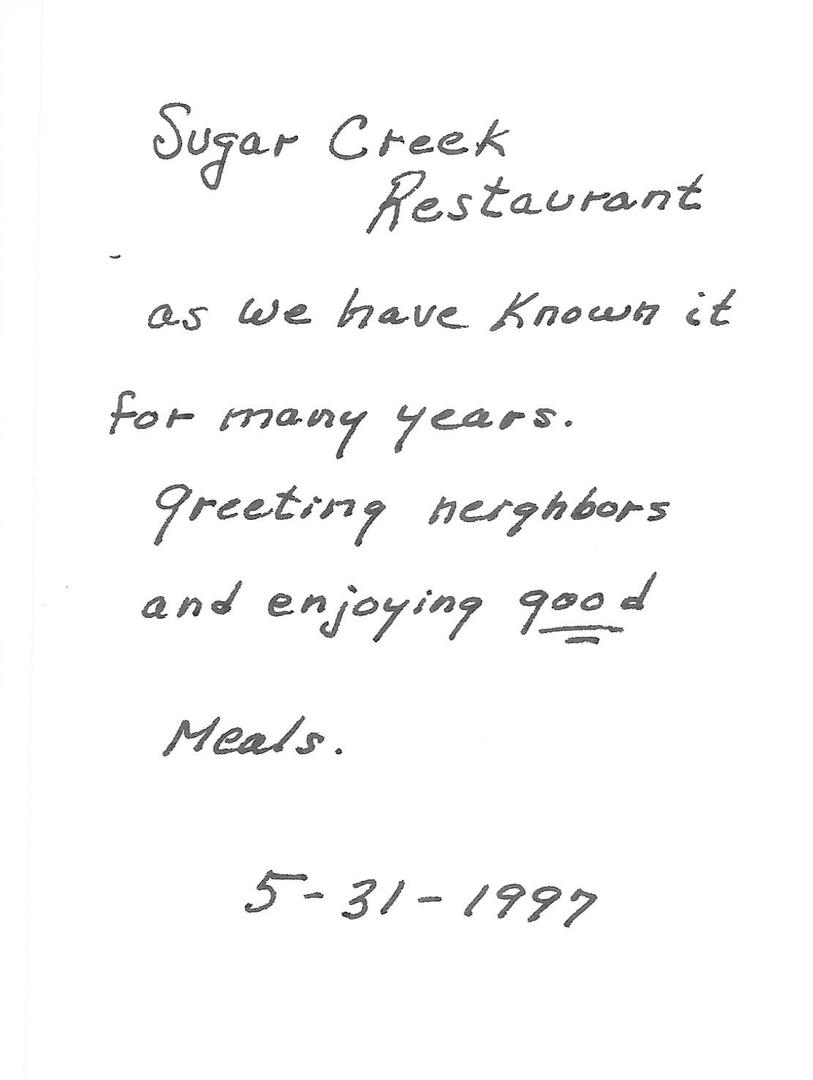 Sugar Creek
Restaurant
as we have Known it
for many years.
greeting neighbors
and enjoying good
Meals.
5-31-1997